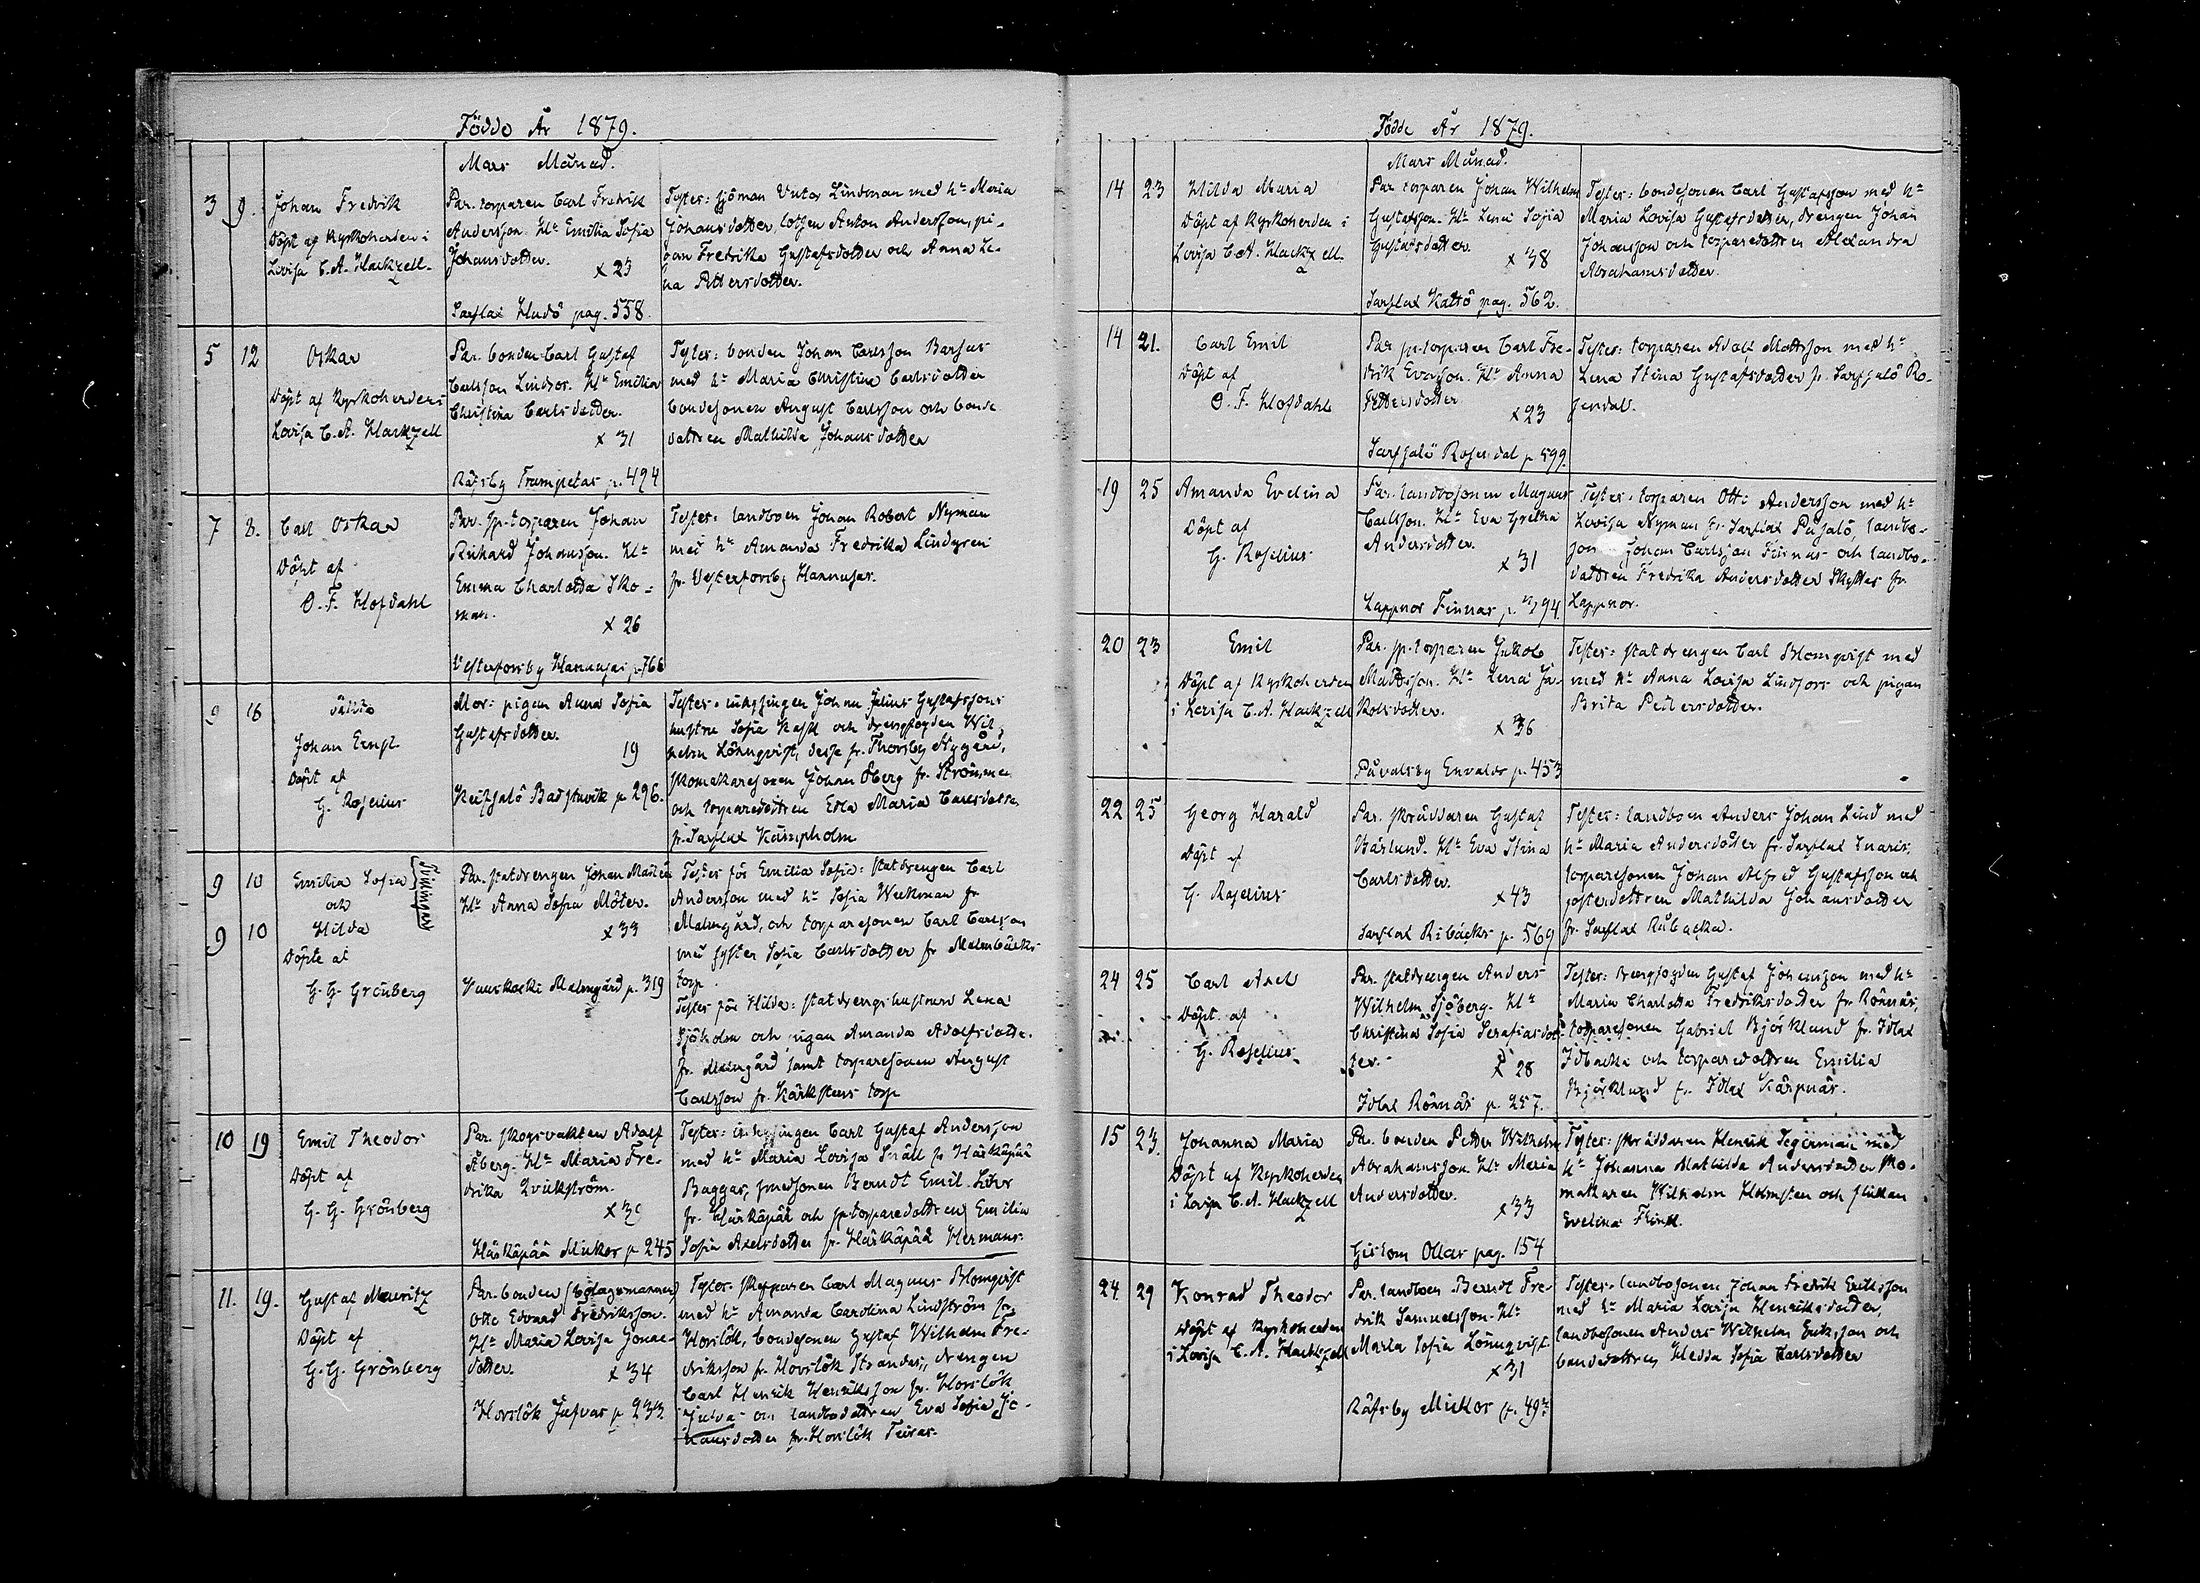 Födde År 1879.
Mars Månad.
3 9. Johan Fredrik
Döpt af Kyrkoherden i
Lovisa C. A. Hackzell.
Par. torparen Carl Fredrik
Andersson. H:n Emilia Sofia
Johansdotter.
x 23
Sarflax Hudö pag. 558.
Tester: sjöman Victor Lindman med h:n Maria
Johansdotter, lotsen Anton Andersson, pi-
gan Fredrika Gustafsdotter och Anna Le-
na Pettersdotter.
5 12 Oskar
Döpt af Kyrkoherden i
Lovisa C. A. Hackzell
Par. bonden Carl Gustaf
Carlsson Lindroos. H:n Emilia
Christina Carlsdotter.
x 31
Räfsby Trumpetas p. 494
Tester: bonden Johan Carlsson Barsas
med h:n Maria Christina Carlsdotter
bondesonen August Carlsson och bonde
dottren Mathilda Johansdotter
7 8. Carl Oskar
Döpt af
O. F. Hofdahl
Par. sp-torparen Johan
Richard Johansson. H:n
Emma Charlotta Sko-
man.
x 26
Vesterforsby Hannusas p. 766
Tester: landboen Johan Robert Nyman
med h:n Amanda Fredrika Lindgren
fr. Vesterforsby Hannusas.
9 16
Johan Ernst
Döpt af
G. Roselius
Mor: pigan Anna Sofia
Gustafsdotter.
19
Keitsalö Badstuvik p. 296.
Tester: inhysingen Johan Julius Gustafssons
hustru Sofia Rask och drengfogden Wil-
helm Lönnqvist, desse fr. Thorsby Nygård,
skomakaresonen Johan Öberg fr. Strömme
och torparedottren Edla Maria Carlsdotter
fr. Sarflax Kämpholm
9 10 Emilia Sofia
och
9 10 Hilda
Tvillingar
Döpte af
G. G. Grönberg
Par. statdrengen Johan Malén
H:n Anna Sofia Möller.
x 33
Kuuskoski Malmgård p. 319
Tester för Emilia Sofia: statdrengen Carl
Andersson med h:n Sofia Weckman fr
Malmgård, och torparesonen Carl Carlsson
med syster Sofia Carlsdotter fr Malmbäcks
torp.
Tester för Hilda: statdrengshustrun Lena
Sjöholm och pigan Amanda Adolfsdotter
fr. Malmgård samt torparesonen August
Carlsson fr. Kärkstens torp
10 19 Emil Theodor
Döpt af
G. G. Grönberg
Par. skogsvakten Adolf
Åberg. H:n Maria Fre-
drika Qvickström.
Härkäpää Mickos p 245
Tester: inhysingen Carl Gustaf Andersson
med h:n Maria Lovisa Snäll fr Härkäpää
Baggas, smedsonen Berndt Emil Löhr
fr. Härkäpää och sp-torparedottren Emilia
Sofia Axelsdotter fr. Härkäpää Hermans.
11. 19. Gustaf Mauritz
Döpt af
G. G. Grönberg
Par. bonden (bolagsmannen)
Otto Edvard Fredriksson.
H:n Maria Lovisa Jonae-
dotter.
x 34
Horslök Jufvas p 233.
Tester: skepparen Carl Magnus Blomqvist
med h:n Amanda Carolina Lindström fr.
Horslök, bondesonen Gustaf Wilhelm Fre-
driksson fr. Horslök Strandas, drengen
Carl Henrik Henriksson fr. Horslök
Jufvas och landbodottren Eva Sofia Jo-
hansdotter fr. Horslök Teiras.
Födde År 1879.
Mars Månad.
14 23 Hilda Maria
Döpt af Kyrkoherden i
Lovisa C. A. Hackzell.
Par. torparen Johan Wilhelm
Gustafsson. H:n Lena Sofia
Gustafsdotter.
x 38
Sarflax Kattö pag. 562.
Tester: bondesonen Carl Gustafsson med h:n
Maria Lovisa Gustafsdotter, drengen Johan
Johansson och torparedottren Alexandra
Abrahamsdotter.
14 21. Carl Emil
Döpt af
O. F. Hofdahl
Par sp-torparen Carl Fre-
drik Evasson. H:n Anna
Pettersdotter
x 23
Sarfsalö Rosendal p 599.
Tester: torparen Adolf Mattsson med h:n
Lena Stina Gustafsdotter fr. Sarfsalö Ro-
sendal.
19 25 Amanda Evelina
Döpt af
G. Roselius
Par. landbosonen Magnus
Carlsson. H:n Eva Gretha
Andersdotter.
x 31
Lappnor Finnas p. 794.
Tester: torparen Otto Andersson med h:n
Lovisa Nyman fr. Sarflax Påsalö, landbo-
son Johan Carlsson Finnas och landbo-
dottren Fredrika Andersdotter Skyttas fr.
Lappnor.
20 23 Emil
Döpt af Kyrkoherden
i Lovisa C. A. Hackzell
Par. sp-torparen Jakob
Mattsson. H:n Lena Ja-
kobsdotter.
x 36
Påvalsby Envalds p. 453
Tester: statdrengen Carl Blomqvist med
med h:n Anna Lovisa Lindfors och pigan
Brita Pettersdotter.
22 25 Georg Harald
Döpt af
G. Roselius
Par. skräddaren Gustaf
Bärlund. H:n Eva Stina
Carlsdotter.
x 43
Sarflax Råbacka p. 569
Tester: landboen Anders Johan Lind med
h:n Maria Andersdotter fr. Sarflax Snaris,
torparesonen Johan Alfred Gustafsson och
fosterdottren Mathilda Johansdotter
fr. Sarflax Råbacka.
24 25 Carl Axel
Döpt af
G. Roselius
Par. statdrengen Anders
Wilhelm Sjöberg. H:n
Christina Sofia Serafiasdot-
ter.
x 28
Idlax Rönnäs p. 257.
Tester: drengfogden Gustaf Johansson med h:n
Maria Charlotta Fredriksdotter fr. Rönnäs,
torparesonen Gabriel Björklund fr. Idlax
Idbacka och torparedottren Emilia
Björklund fr. Idlax Kärpnäs.
15 23. Johanna Maria
Döpt af Kyrkoherden
i Lovisa C. A. Hackzell
Par. bonden Petter Wilhelm
Abrahamsson. H:n Maria
Andersdotter.
x 33
Gislom Ollas pag. 154
Tester: skräddaren Henrik Segerman med
h:n Johanna Mathilda Andersdotter sko-
makaren Wilhelm Holmsten och flickan
Evelina Flink.
24 29 Konrad Theodor
Döpt af Kyrkoherden
i Lovisa C. A. Hackzell
Par. landboen Berndt Fre-
drik Samuelsson. H:n
Maria Sofia Lönnqvist.
x 31
Räfsby Mickos p. 492
Tester: landbosonen Johan Fredrik Eriksson
med h:n Maria Lovisa Henriksdotter,
landbosonen Anders Wilhelm Eriksson och
bondedottren Hedda Sofia Karlsdotter